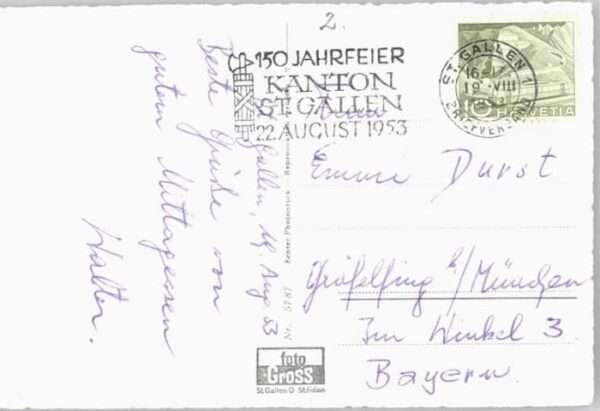 2.
150 JAHRFEIER
KANTON
ST. GALLEN
22. AUGUST 1953
ST. GALLEN 1
16
19. VIII
BRIEFVERSAND
10 HELVETIA
St. Gallen, 19. Aug 53
Beste Grüße von
gutem Mittagessen
Walter.
Emma Durst
Gräfelfing b/München
Im Winkel 3.
Bayern.
Nr. 5787
foto
Gross
St. Gallen O St. Fiden